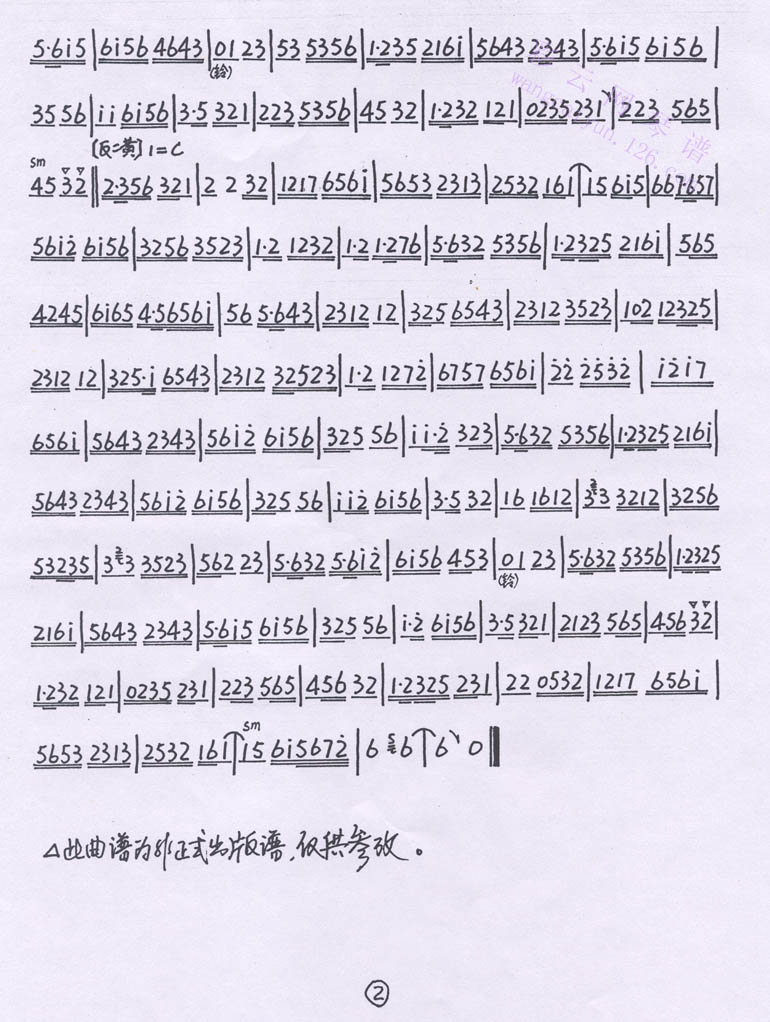 5·6i5|6i56 4643|01 23|53 5356|1·235 216i|5643 2·343|5·6i5 6i56|
(铃)
35 56|ii 6i56|3·5 321|223 5356|45 32|1·232 121|0235 231|223 565|
[反二黄] 1=C
sm
45 32‖2·356 321|2 2 32|1217 656i|5653 2313|2532 161|15 6i5|667·657|
56i2̇ 6i56|3256 3523|1·2 1232|1·2 1·276|5·632 5356|1·2325 216i|565
4245|6i65 4·5656i|56 5·643|2312 12|325 6543|2312 3523|102 12325|
2312 12|325·i 6543|2312 32523|1·2 1272̇|6757 656i|2̇2̇ 2̇53̇2̇|i2̇i7
656i|5643 2343|56i2̇ 6i56|325 56|ii·2̇ 323|5·632 5356|1·2325 216i|
5643 2343|56i2̇ 6i56|325 56|ii2̇ 6i56|3·5 32|16 1612|3 2 3 3212|3256
53235|3 2 3 3523|562 23|5·632 5·6i2̇|6i56 453|01 23|5·632 5356|1·2325
(铃)
216i|5643 2343|5·6i5 6i56|325 56|i·2̇ 6i56|3·5 321|2123 565|456 32|
1·232 121|0235 231|223 565|456 32|1·2325 231|22 0532|1217 656i|
sm
5653 2313|2532 161|15 6i5672̇|6 5 6|6 0‖
△此曲谱为非正式出版谱，仅供参改。
②